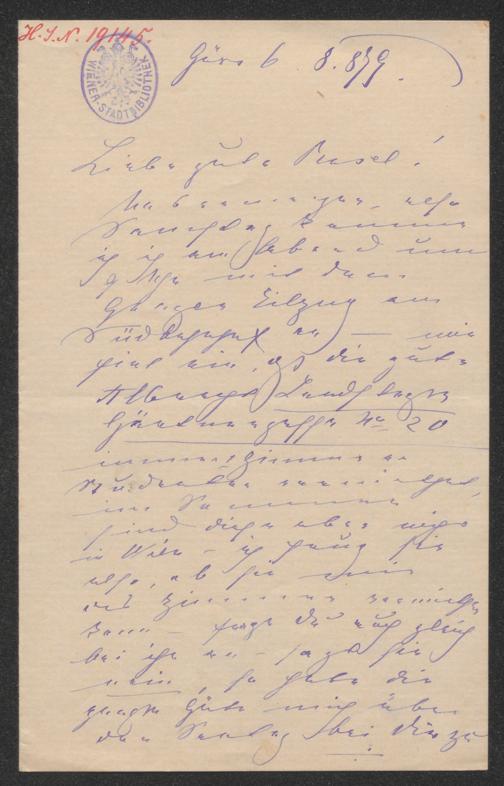 H. I. N. 19145.
WIENER-STADTBIBLIOTHEK
6 8. 879.
Liebe gute Resel!
also
Samstag komme
ich am Abend um
9 Uhr mit dem
Grazer Eilzug am
Südbahnhof an — mir
fiel ein, ob die gute
Landstrasse
Gärtnergasse No 20
immer Zimmer an
Studenten vermiethet,
im Sommer
sind diese aber nicht
in Wien – ich frug sie
also, ob sie mir
das Zimmer vermiethen
kann – frage Du auch gleich
bei ihr an – sagt sie
nein, so habe die
große Güte mich über
den Sonntag bei Dir zu